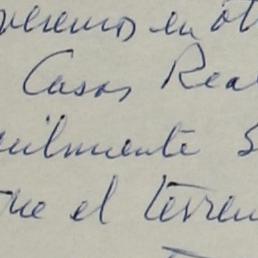 veremos en ot
Casas Real
cilmente s
que el terren